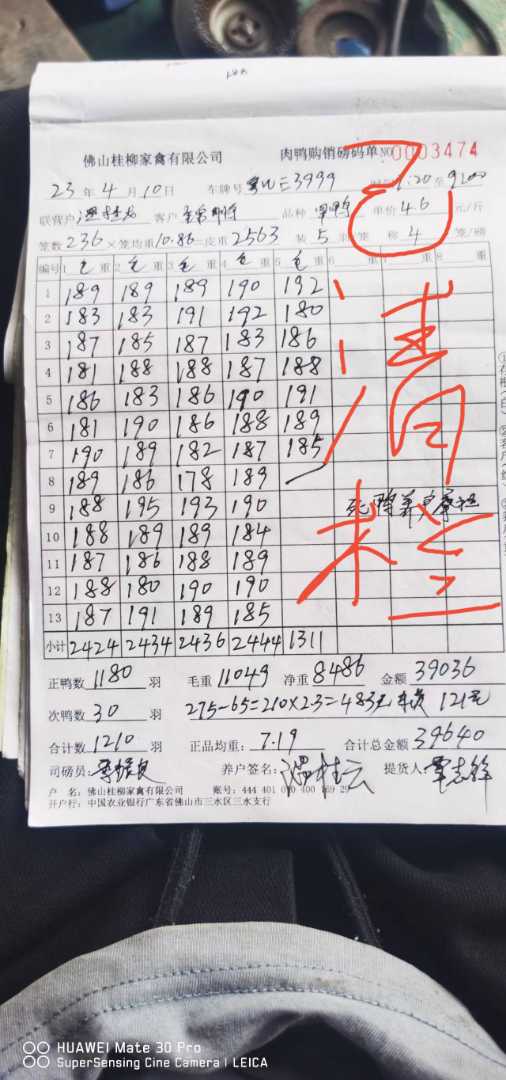 佛山桂柳家禽有限公司 肉鸭购销磅码单 NO 0003474
23 年 4 月 10 日 车牌号 E3999 至 9:00
联营户 客户 品种 单价 4.6 元/斤
笼数 236 × 笼均重 10.86 = 皮重 2563 装 5 只/笼 称 4 笼/磅
编号 1 毛 重 2 毛 重 3 毛 重 4 毛 重 5 毛 重 6 重 7 重 8 重
1 189 189 189 190 192
2 183 183 191 192 180
3 187 185 187 183 186
4 181 188 188 187 188
5 186 183 186 190 191
6 181 190 186 188 189
7 190 189 182 187 185
8 189 186 178 189
9 188 195 193 190
10 188 189 189 184
11 187 186 188 189
12 188 180 190 190
13 187 191 189 185
小计 2424 2434 2436 2444 1311
已清栏
正鸭数 1180 羽 毛重 11049 净重 8486 金额 39036
次鸭数 30 羽 275-65=210×2.3=483元 121元
合计数 1210 羽 正品均重: 7.19 合计总金额 39640
司磅员: 养户签名: 温桂云 提货人: 覃志锋
户 名: 佛山桂柳家禽有限公司 账号: 444 401 0 0 400 1 69 29
开户行: 中国农业银行广东省佛山市三水区三水支行
HUAWEI Mate 30 Pro
SuperSensing Cine Camera | LEICA